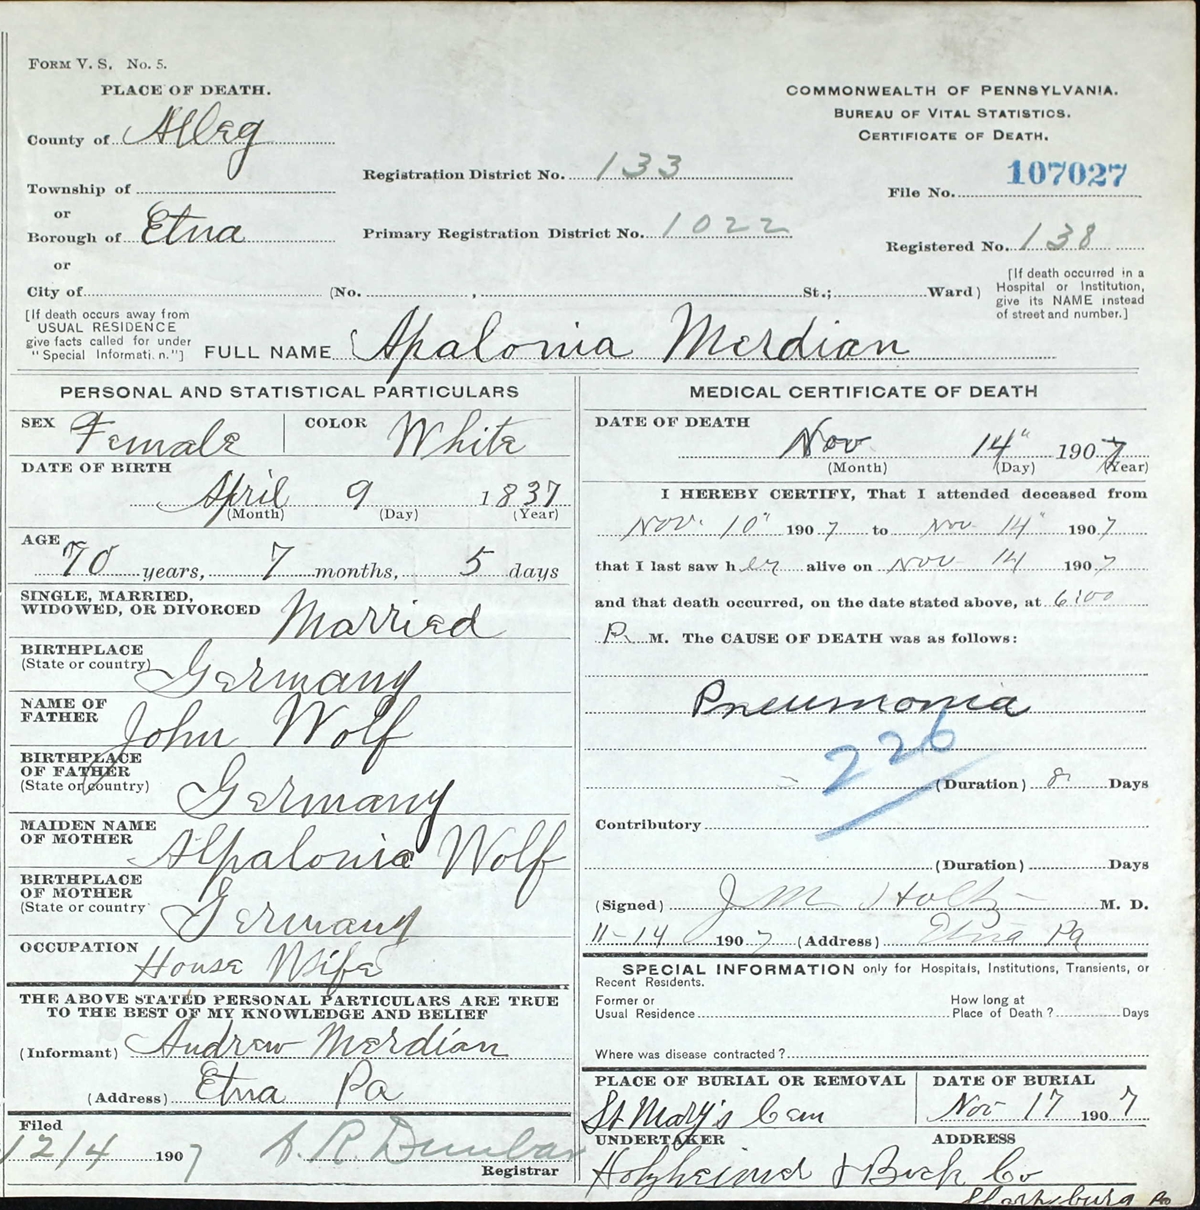 FORM V. S. No. 5.
PLACE OF DEATH.
County of Alleg
Township of
or
Borough of Etna
or
City of (No. , St.; Ward)
COMMONWEALTH OF PENNSYLVANIA.
BUREAU OF VITAL STATISTICS.
CERTIFICATE OF DEATH.
Registration District No. 133
File No. 107027
Primary Registration District No. 1022
Registered No. 138
[If death occurred in a
Hospital or Institution,
give its NAME instead
of street and number.]
[If death occurs away from
USUAL RESIDENCE
give facts called for under
"Special Informati n."]
FULL NAME Apalonia Merdian
PERSONAL AND STATISTICAL PARTICULARS
SEX Female COLOR White
DATE OF BIRTH
April 9 1837
(Month) (Day) (Year)
AGE
70 years, 7 months, 5 days
SINGLE, MARRIED,
WIDOWED, OR DIVORCED Married
BIRTHPLACE
(State or country) Germany
NAME OF
FATHER John Wolf
BIRTHPLACE
OF FATHER
(State or country) Germany
MAIDEN NAME
OF MOTHER Alpalonia Wolf
BIRTHPLACE
OF MOTHER
(State or country Germany
OCCUPATION House Wife
THE ABOVE STATED PERSONAL PARTICULARS ARE TRUE
TO THE BEST OF MY KNOWLEDGE AND BELIEF
(Informant) Andrew Merdian
(Address) Etna Pa
Filed
12/4 1907 A. R. Dunbar
Registrar
MEDICAL CERTIFICATE OF DEATH
DATE OF DEATH
Nov 14" 1907
(Month) (Day) (Year)
I HEREBY CERTIFY, That I attended deceased from
Nov. 10" 1907 to Nov 14" 1907
that I last saw her alive on Nov 14 1907
and that death occurred, on the date stated above, at 6:00
P. M. The CAUSE OF DEATH was as follows:
Pneumonia
226
(Duration) 8 Days
Contributory
(Duration) Days
(Signed) J M Holtz M. D.
11-14 1907 (Address) Etna Pa
SPECIAL INFORMATION only for Hospitals, Institutions, Transients, or
Recent Residents.
Former or
Usual Residence
How long at
Place of Death? Days
Where was disease contracted?
PLACE OF BURIAL OR REMOVAL
St Mary's Cem
DATE OF BURIAL
Nov 17 1907
UNDERTAKER ADDRESS
Holzheimer & Bock Co
Sharpsburg Pa